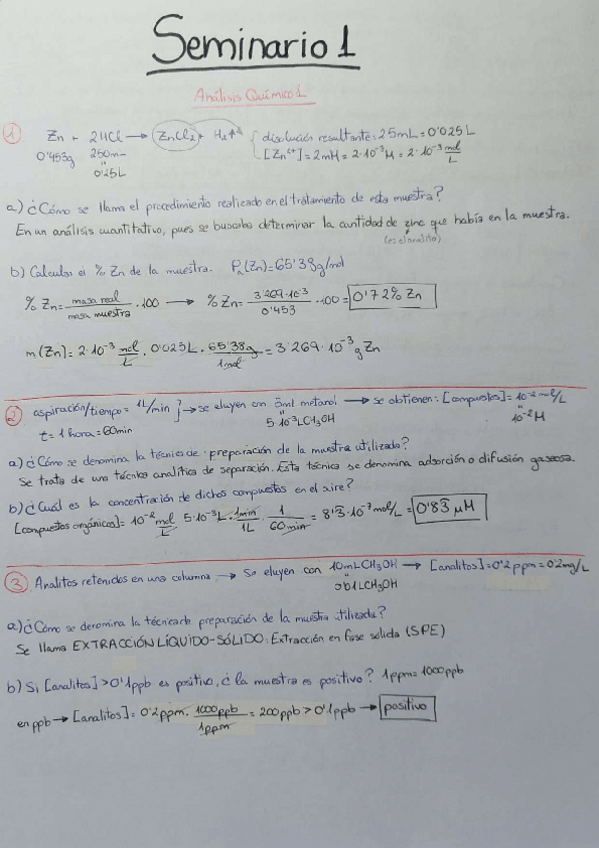 Seminario 1
Análisis Químico 1
① Zn + 2HCl → ZnCl₂ + H₂↑ { disolución resultante: 25mL = 0'025L
0'453g 250mL [Zn²⁺] = 2mM = 2·10⁻³M = 2·10⁻³ mol/L
0'25L
a) ¿Cómo se llama el procedimiento realizado en el tratamiento de esta muestra?
En un análisis cuantitativo, pues se buscaba determinar la cantidad de zinc que había en la muestra.
(es el analito)
b) Calcular el % Zn de la muestra. Pa(Zn) = 65'38g/mol
% Zn = masa real / masa muestra · 100 → % Zn = 3'269·10⁻³ / 0'453 · 100 = 0'72% Zn
m(Zn) = 2·10⁻³ mol/L · 0'025L · 65'38g / 1mol = 3'269·10⁻³ g Zn
② aspiración/tiempo = 1L/min } → se eluyen con 5mL metanol → se obtienen: [compuestos] = 10⁻² mol/L
t = 1 hora = 60min 5·10⁻³L CH₃OH 10⁻² M
a) ¿Cómo se denomina la técnica de preparación de la muestra utilizada?
Se trata de una técnica analítica de separación. Esta técnica se denomina adsorción o difusión gaseosa.
b) ¿Cuál es la concentración de dichos compuestos en el aire?
[compuestos orgánicos] = 10⁻² mol/L · 5·10⁻³L · 1min/1L · 1/60min = 8'3·10⁻⁷ mol/L = 0'83 μM
③ Analitos retenidos en una columna → Se eluyen con 10mL CH₃OH → [analitos] = 0'2ppm = 0'2mg/L
0'01L CH₃OH
a) ¿Cómo se denomina la técnica de preparación de la muestra utilizada?
Se llama EXTRACCIÓN LÍQUIDO-SÓLIDO: Extracción en fase sólida (SPE)
b) Si [analitos] > 0'1ppb es positivo, ¿la muestra es positivo? 1ppm = 1000ppb
en ppb → [analitos] = 0'2ppm · 1000ppb / 1ppm = 200ppb > 0'1ppb → positivo